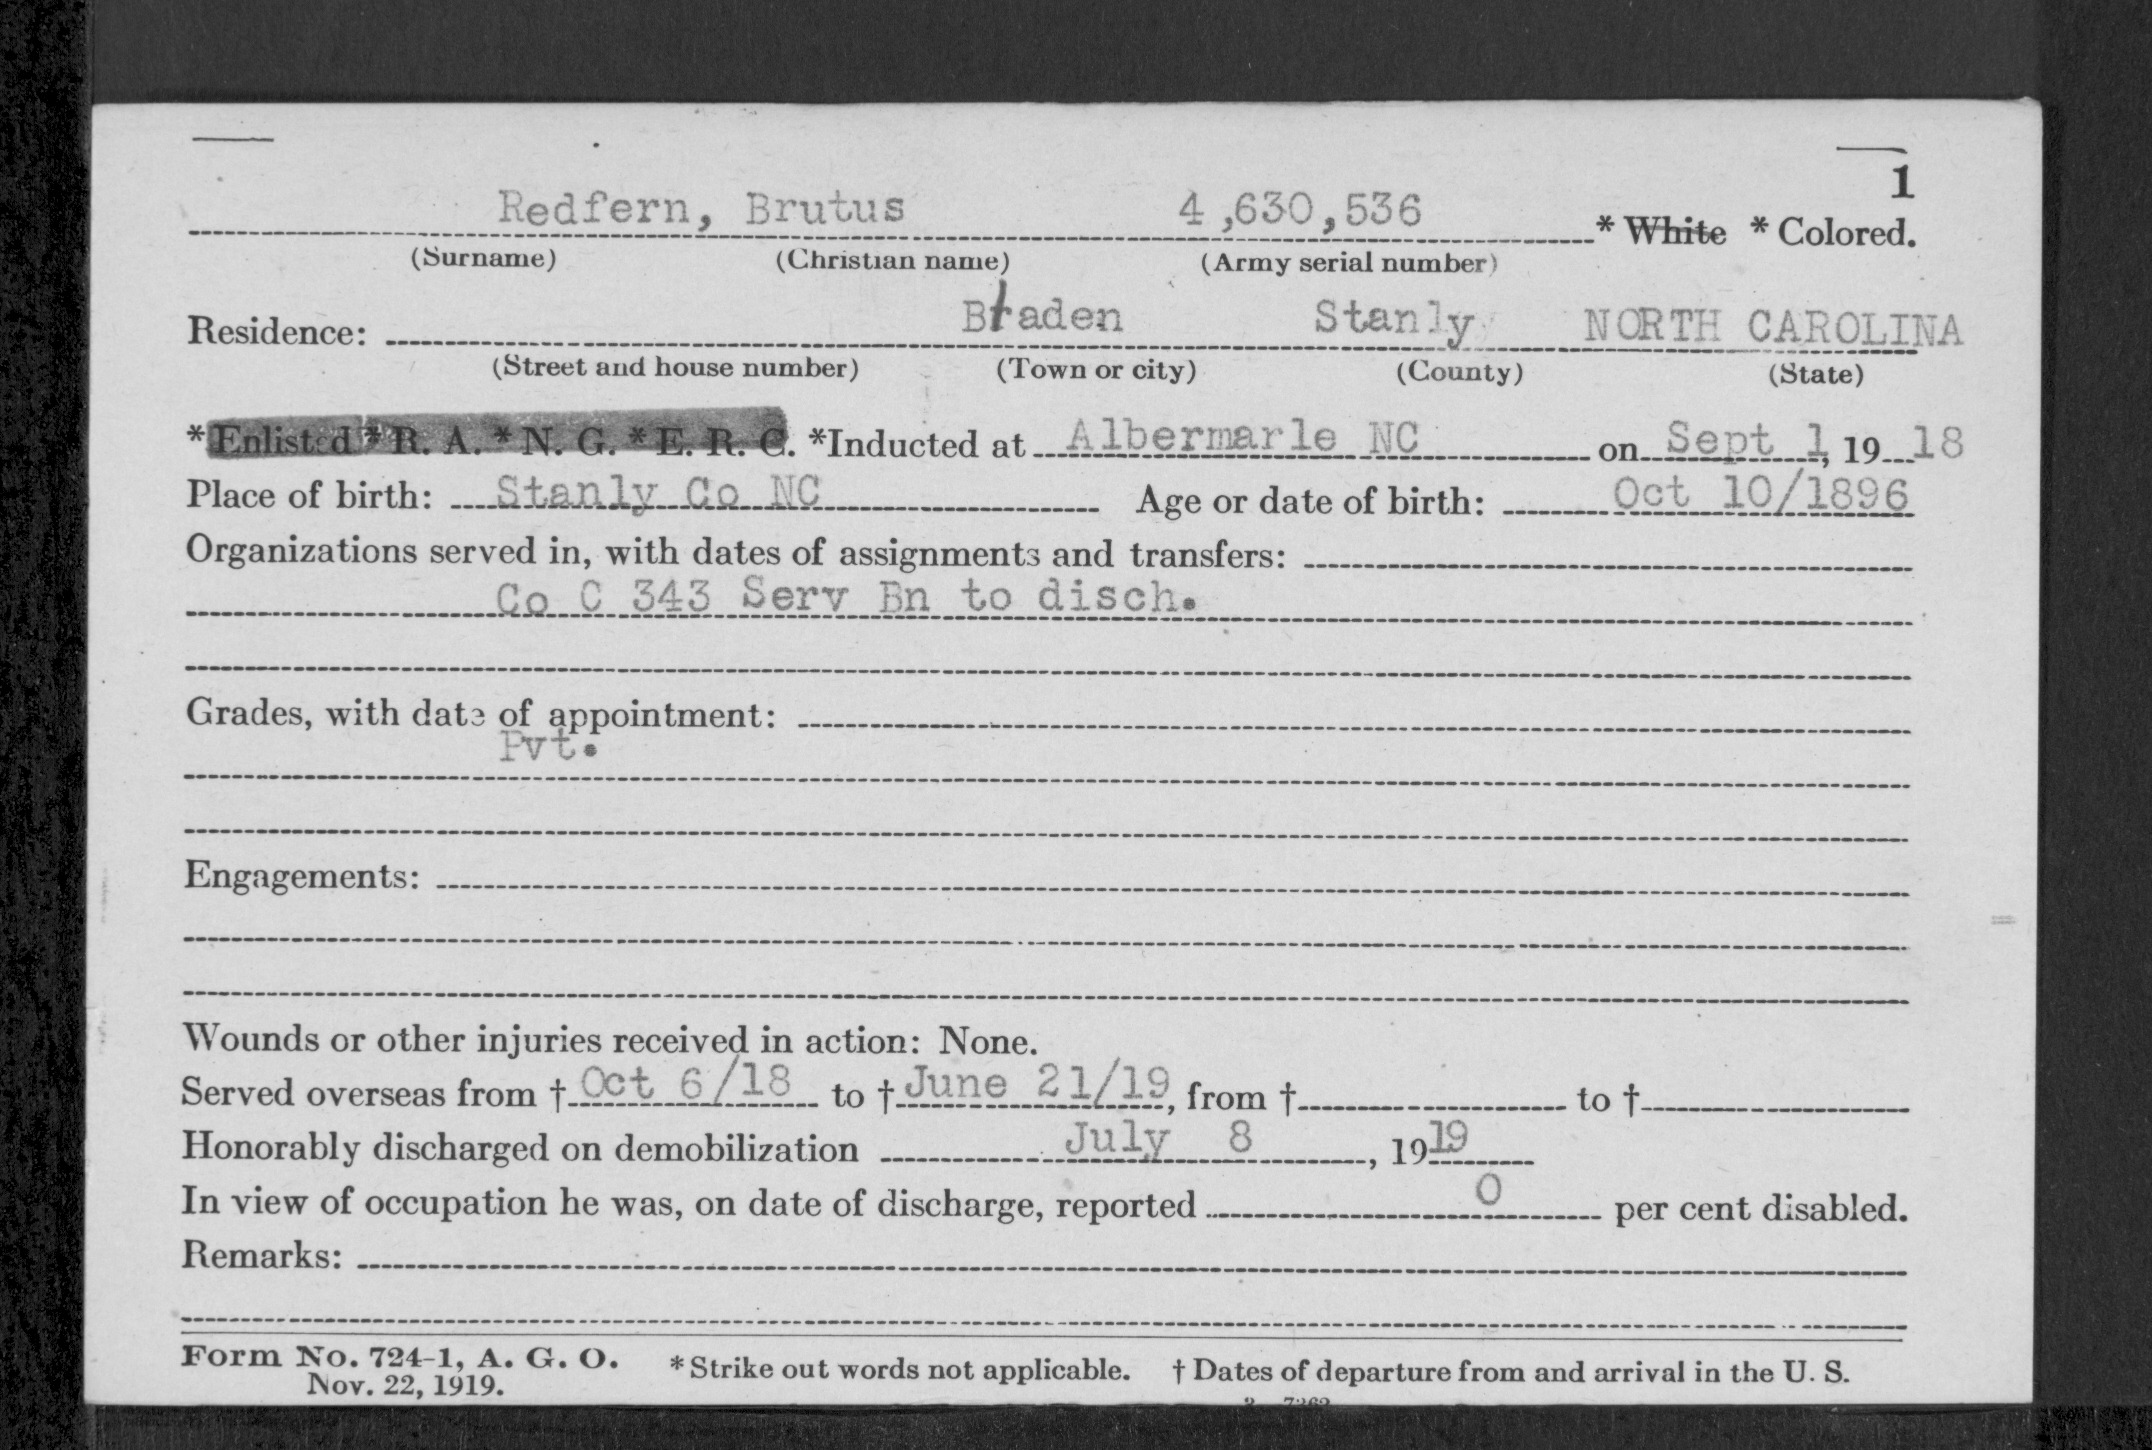 1
Redfern, Brutus 4,630,536 * White * Colored.
(Surname) (Christian name) (Army serial number)
Residence: Stanly NORTH CAROLINA
(Street and house number) (Town or city) (County) (State)
*Enlisted *R. A. *N. G. *E. R. C. *Inducted at Albermarle NC on Sept 1, 19 18
Place of birth: Stanly Co NC Age or date of birth: Oct 10/1896
Organizations served in, with dates of assignments and transfers:
Co C 343 Serv Bn to disch.
Grades, with date of appointment:
Pvt.
Engagements:
Wounds or other injuries received in action: None.
Served overseas from † Oct 6/18 to † June 21/19, from † to †
Honorably discharged on demobilization July 8, 1919
In view of occupation he was, on date of discharge, reported 0 per cent disabled.
Remarks:
Form No. 724-1, A. G. O. * Strike out words not applicable. † Dates of departure from and arrival in the U. S.
Nov. 22, 1919.